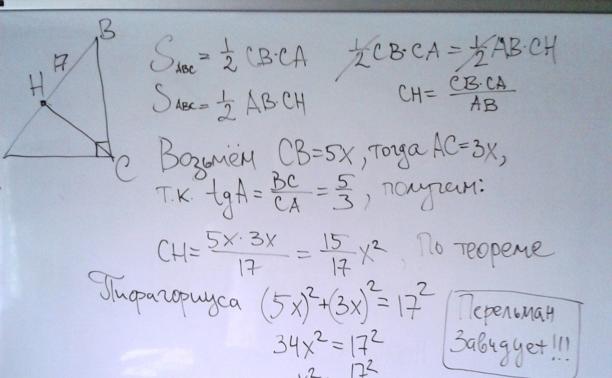 B
17
H
C
S_ABC = 1/2 CB·CA
1/2 CB·CA = 1/2 AB·CH
S_ABC = 1/2 AB·CH
CH = CB·CA / AB
Возьмём CB=5x, тогда AC=3x,
т.к. tgA = BC/CA = 5/3, получим:
CH = 5x·3x / 17 = 15/17 x². По теореме
Пифагориуса (5x)²+(3x)² = 17²
34x² = 17²
Перельман
Завидует!!!
x² = 17²